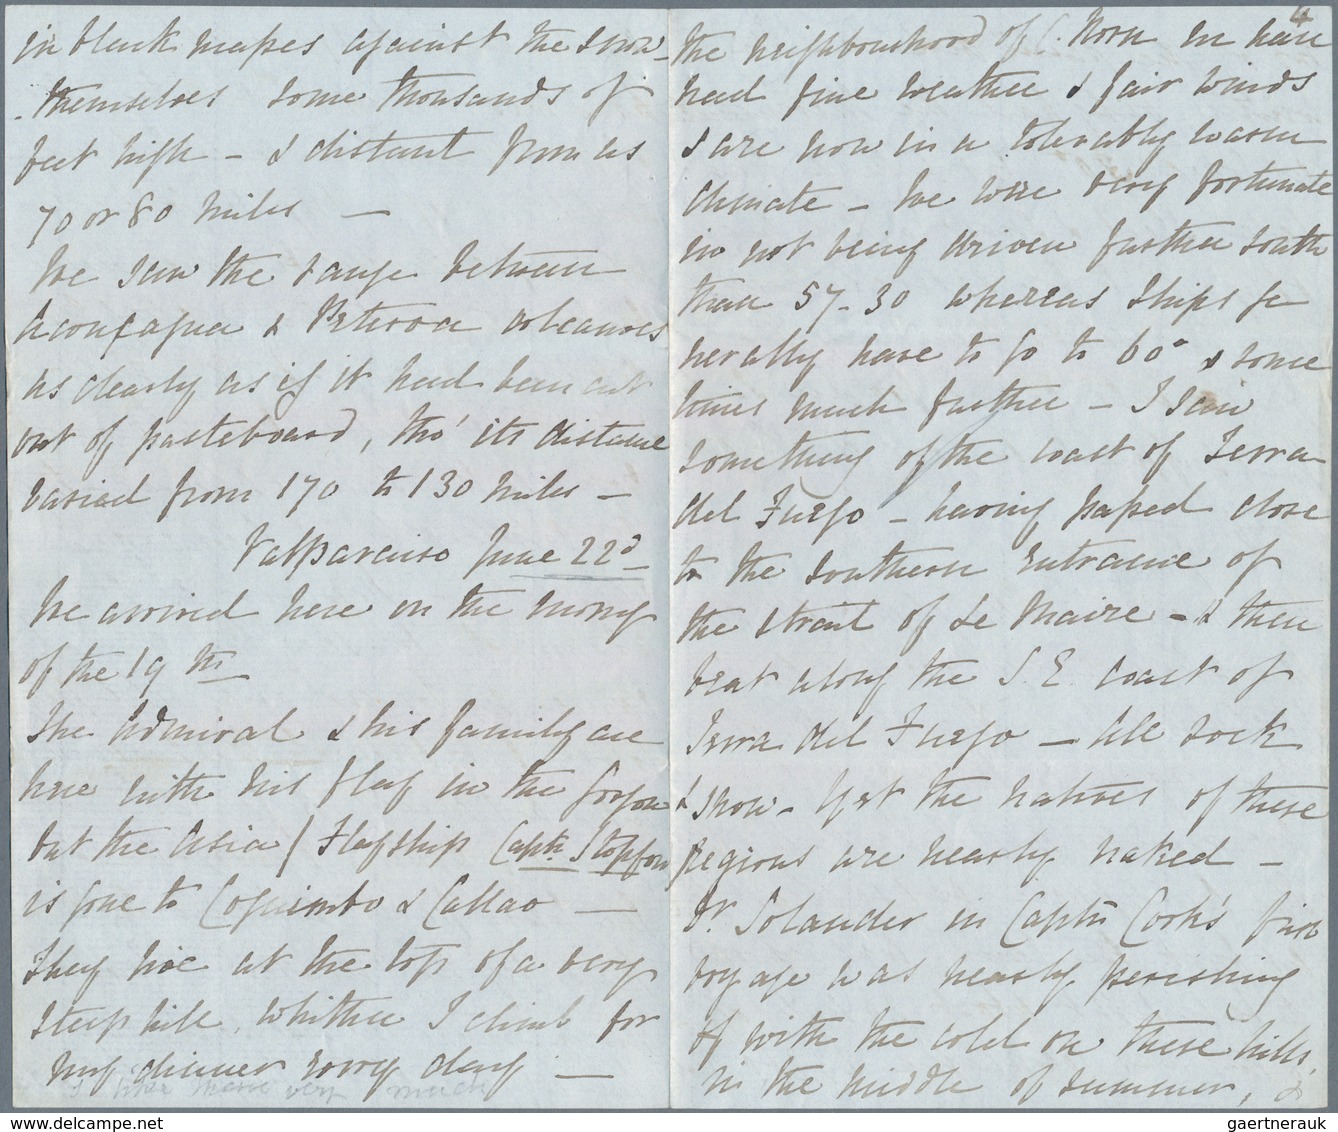 in black masses against the snow
themselves some thousands of
feet high - & distant from us
70 or 80 miles —
We saw the range between
Aconcagua & Peteroa volcanoes
as clearly as if it had been cut
out of pasteboard, tho' its distance
varied from 170 to 130 miles —
Valparaiso June 22d
We arrived here on the morng
of the 19th
The Admiral & his family are
here with his flag in the
but the Asia / Flagship Captn. Stopford
is gone to Coquimbo & Callao —
They live at the top of a very
steep hill, whither I climb for
my dinner every day —
I like them very much
4
the neighbourhood of C. Horn we have
had fine weather & fair winds
& are now in a tolerably warm
climate — We were very fortunate
in not being driven further south
than 57-30 whereas ships ge
nerally have to go to 60° & some
times much further — I saw
something of the coast of Terra
del Fuego — having passed close
to the southern entrance of
the strait of Le Maire — & then
beat along the S.E. coast of
Terra del Fuego — All rock
& snow - Yet the natives of these
regions are nearly naked —
Dr. Solander in Captn Cook's first
voyage was nearly perishing
of with the cold on these hills,
in the middle of summer, &
delcampe.net
gaertnerauk